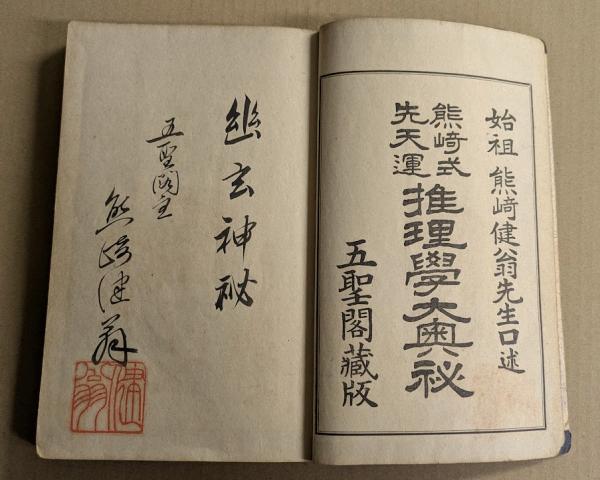 始祖 熊﨑健翁先生口述
熊﨑式
先天運
推理學大奧祕
五聖閣藏版
幽玄神祕
五聖閣主
熊﨑健翁
健翁